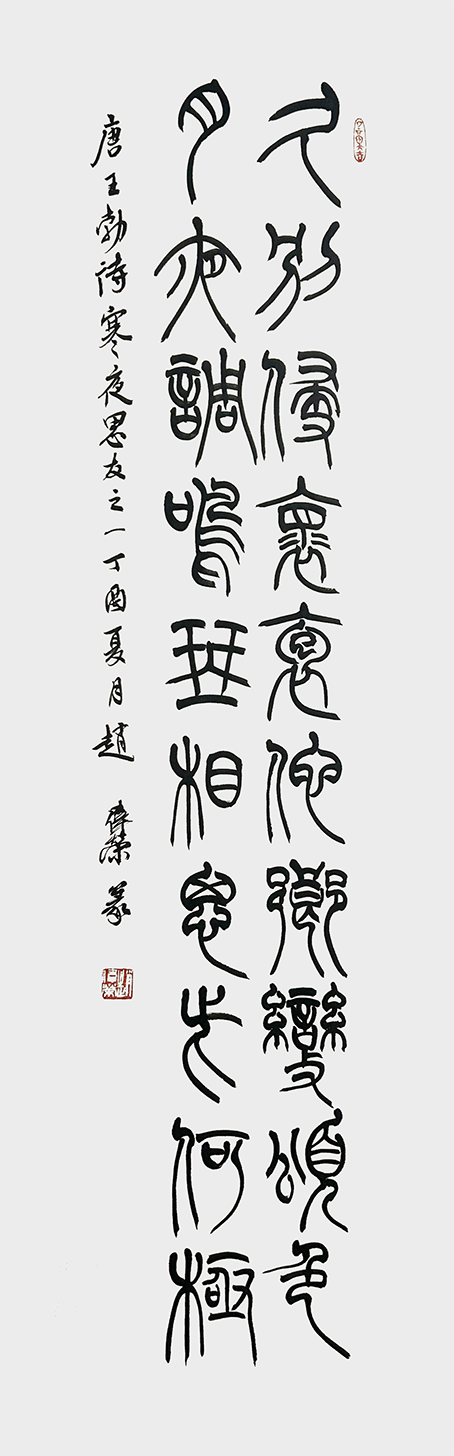 久別侵褱袌他鄉變頌色
月夜調鳴琴相思此何極
唐王勃詩寒夜思友之一丁酉夏月趙榮篆